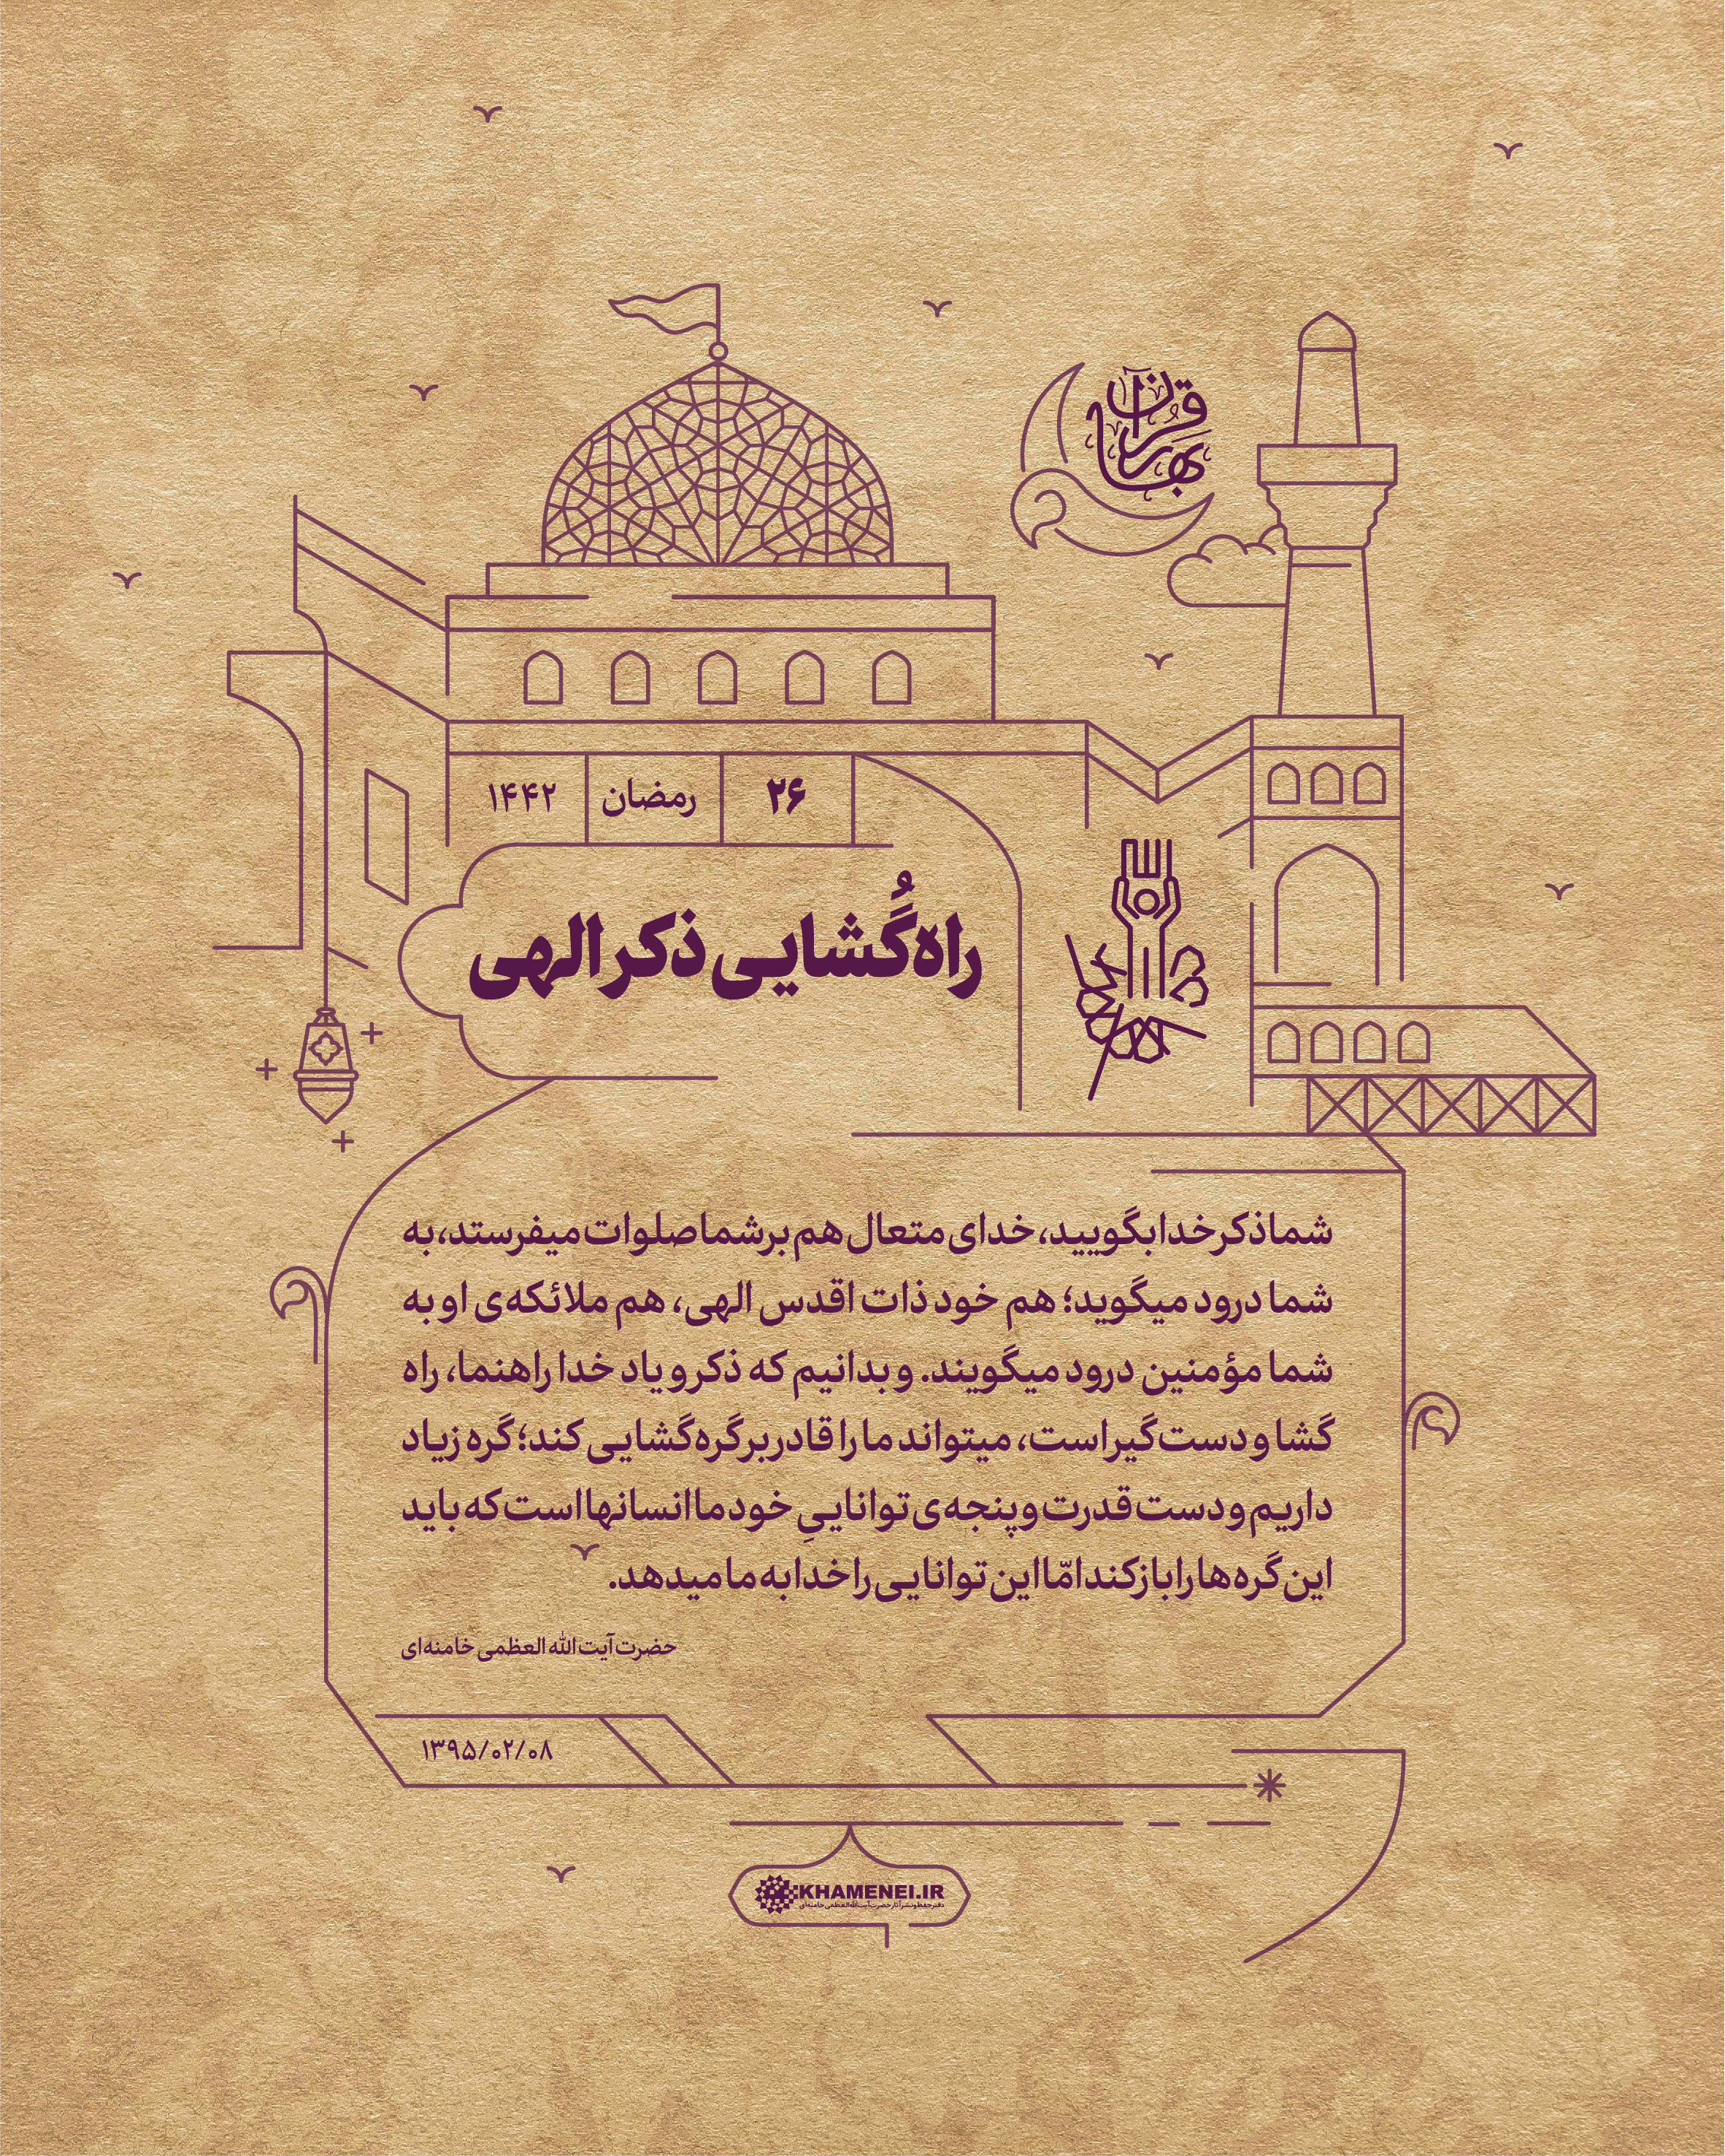 بهار قرآن
۲۶ رمضان ۱۴۴۲
راه‌گُشایی ذکر الهی
شما ذکر خدا بگویید، خدای متعال هم بر شما صلوات میفرستد، به
شما درود میگوید؛ هم خود ذات اقدس الهی، هم ملائکه‌ی او به
شما مؤمنین درود میگویند. و بدانیم که ذکر و یاد خدا راهنما، راه
گشا و دست‌گیر است، میتواند ما را قادر بر گره‌گشایی کند؛ گره زیاد
داریم و دست قدرت و پنجه‌ی تواناییِ خود ما انسانها است که باید
این گره‌ها را باز کند امّا این توانایی را خدا به ما میدهد.
حضرت آیت الله العظمی خامنه‌ای
۱۳۹۵/۰۲/۰۸
KHAMENEI.IR
دفتر حفظ و نشر آثار حضرت آیت‌الله‌العظمی خامنه‌ای